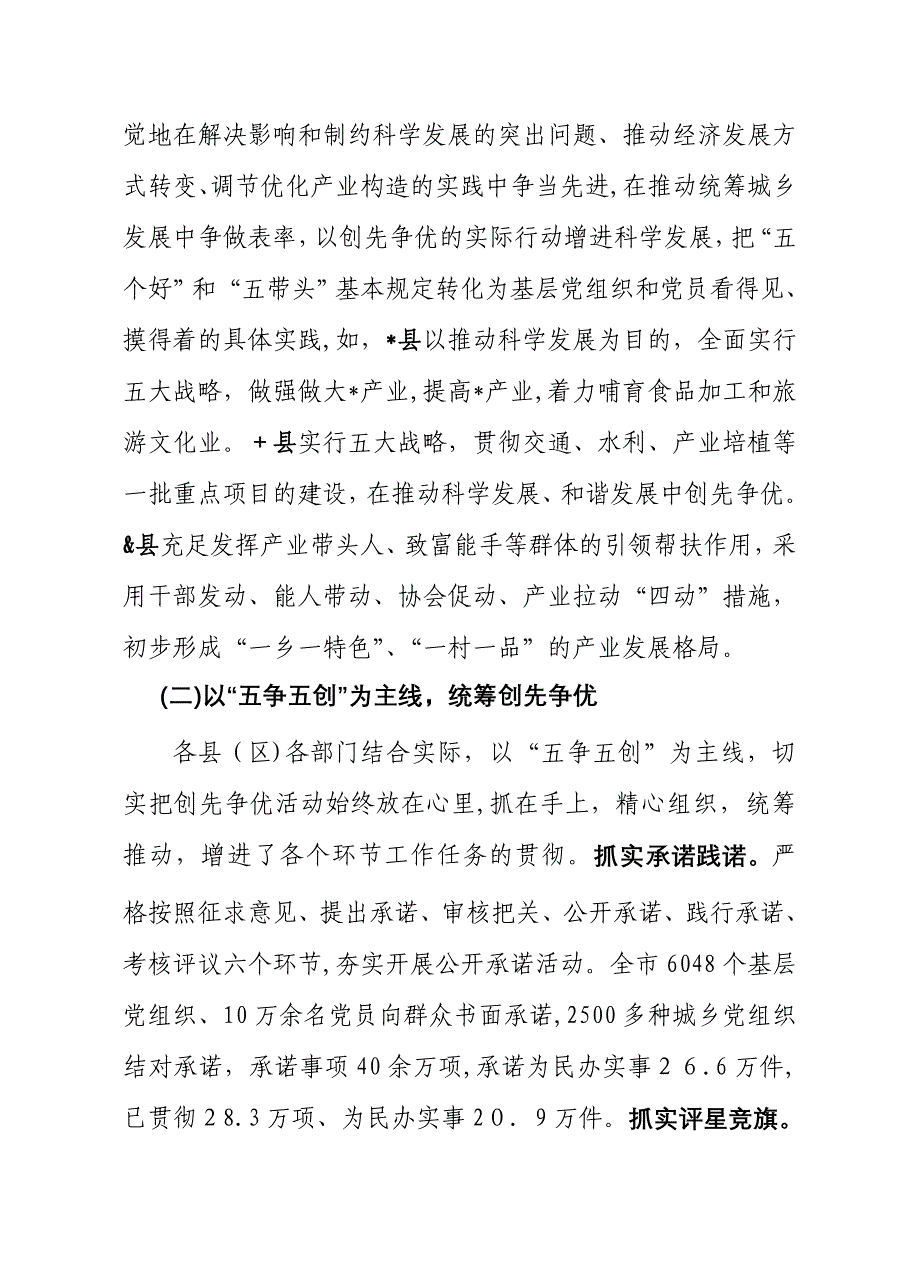 觉地在解决影响和制约科学发展的突出问题、推动经济发展方
式转变、调节优化产业构造的实践中争当先进,在推动统筹城乡
发展中争做表率，以创先争优的实际行动增进科学发展，把“五
个好”和“五带头”基本规定转化为基层党组织和党员看得见、
摸得着的具体实践,如，*县以推动科学发展为目的，全面实行
五大战略，做强做大*产业,提高*产业,着力哺育食品加工和旅
游文化业。＋县实行五大战略，贯彻交通、水利、产业培植等
一批重点项目的建设，在推动科学发展、和谐发展中创先争优。
&县充足发挥产业带头人、致富能手等群体的引领帮扶作用，采
用干部发动、能人带动、协会促动、产业拉动“四动”措施，
初步形成“一乡一特色”、“一村一品”的产业发展格局。
(二)以“五争五创”为主线，统筹创先争优
各县（区)各部门结合实际，以“五争五创”为主线，切
实把创先争优活动始终放在心里,抓在手上，精心组织，统筹
推动，增进了各个环节工作任务的贯彻。抓实承诺践诺。严
格按照征求意见、提出承诺、审核把关、公开承诺、践行承诺、
考核评议六个环节,夯实开展公开承诺活动。全市6048个基层
党组织、10万余名党员向群众书面承诺,2500多种城乡党组织
结对承诺，承诺事项40余万项,承诺为民办实事２６.６万件,
已贯彻２8.３万项、为民办实事２0．９万件。抓实评星竞旗。